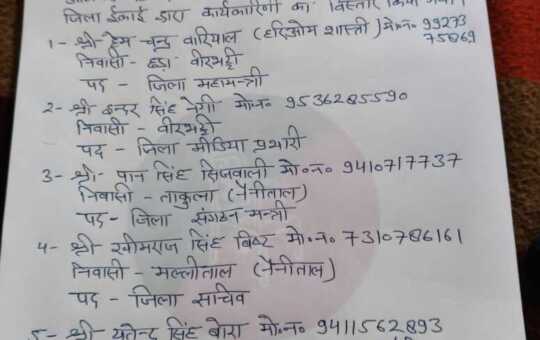 जिला ईकाई द्वारा कार्यकारिणी का विस्तार किया गया।
1- श्री हेम चन्द्र वारियाल (हरिओम शास्त्री) मो०न० 99273
75869
निवासी - हडा वीरभट्टी
पद - जिला महामन्त्री
2- श्री इन्दर सिंह नेगी मो०न० 9536285590
निवासी - वीरभट्टी
पद - जिला मीडिया प्रभारी
3- श्री पान सिंह सिजवाली मो०न० 9410717737
निवासी - ताकुला (नैनीताल)
पद - जिला संगठन मन्त्री
4- श्री खीमराज सिंह बिष्ट मो०न० 7310786161
निवासी - मल्लीताल (नैनीताल)
पद - जिला सचिव
5- श्री यतेन्द्र सिंह बोरा मो०न० 9411562893